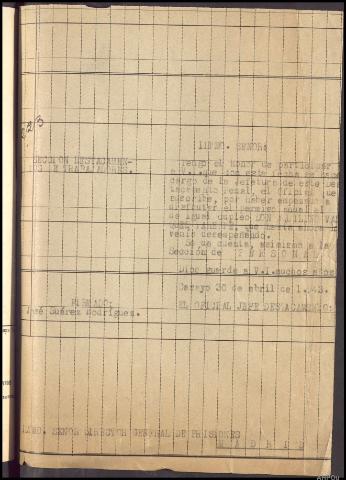 223
ILTMO. SEÑOR:
SECCION DESTACAMEN-
TOS DE TRABAJADORES.
Tengo el honor de participar
a V.I. que con esta fecha se hace
cargo de la Jefatura de este Des
tacamento Penal, el Oficial que
suscribe, por haber empezado a
disfrutar el permiso anual el
de igual empleo DON
que hasta ahora
venía desempeñando.
Se da cuenta, asimismo a la
Sección de PERSONAL
Dios guarde a V.I. muchos años
Garayo 30 de abril de 1.943.
FIRMADO:
EL OFICIAL JEFE DESTACAMENTO:
José Suárez Rodríguez.
ILTMO. SEÑOR DIRECTOR GENERAL DE PRISIONES
MADRID